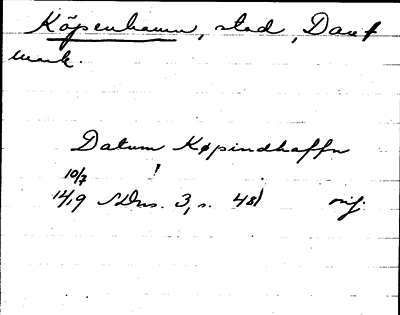 Köpenhamn, stad, Dan
mark.
Datum Køpindhaffn
10/7
1419 SDns. 3, s. 48